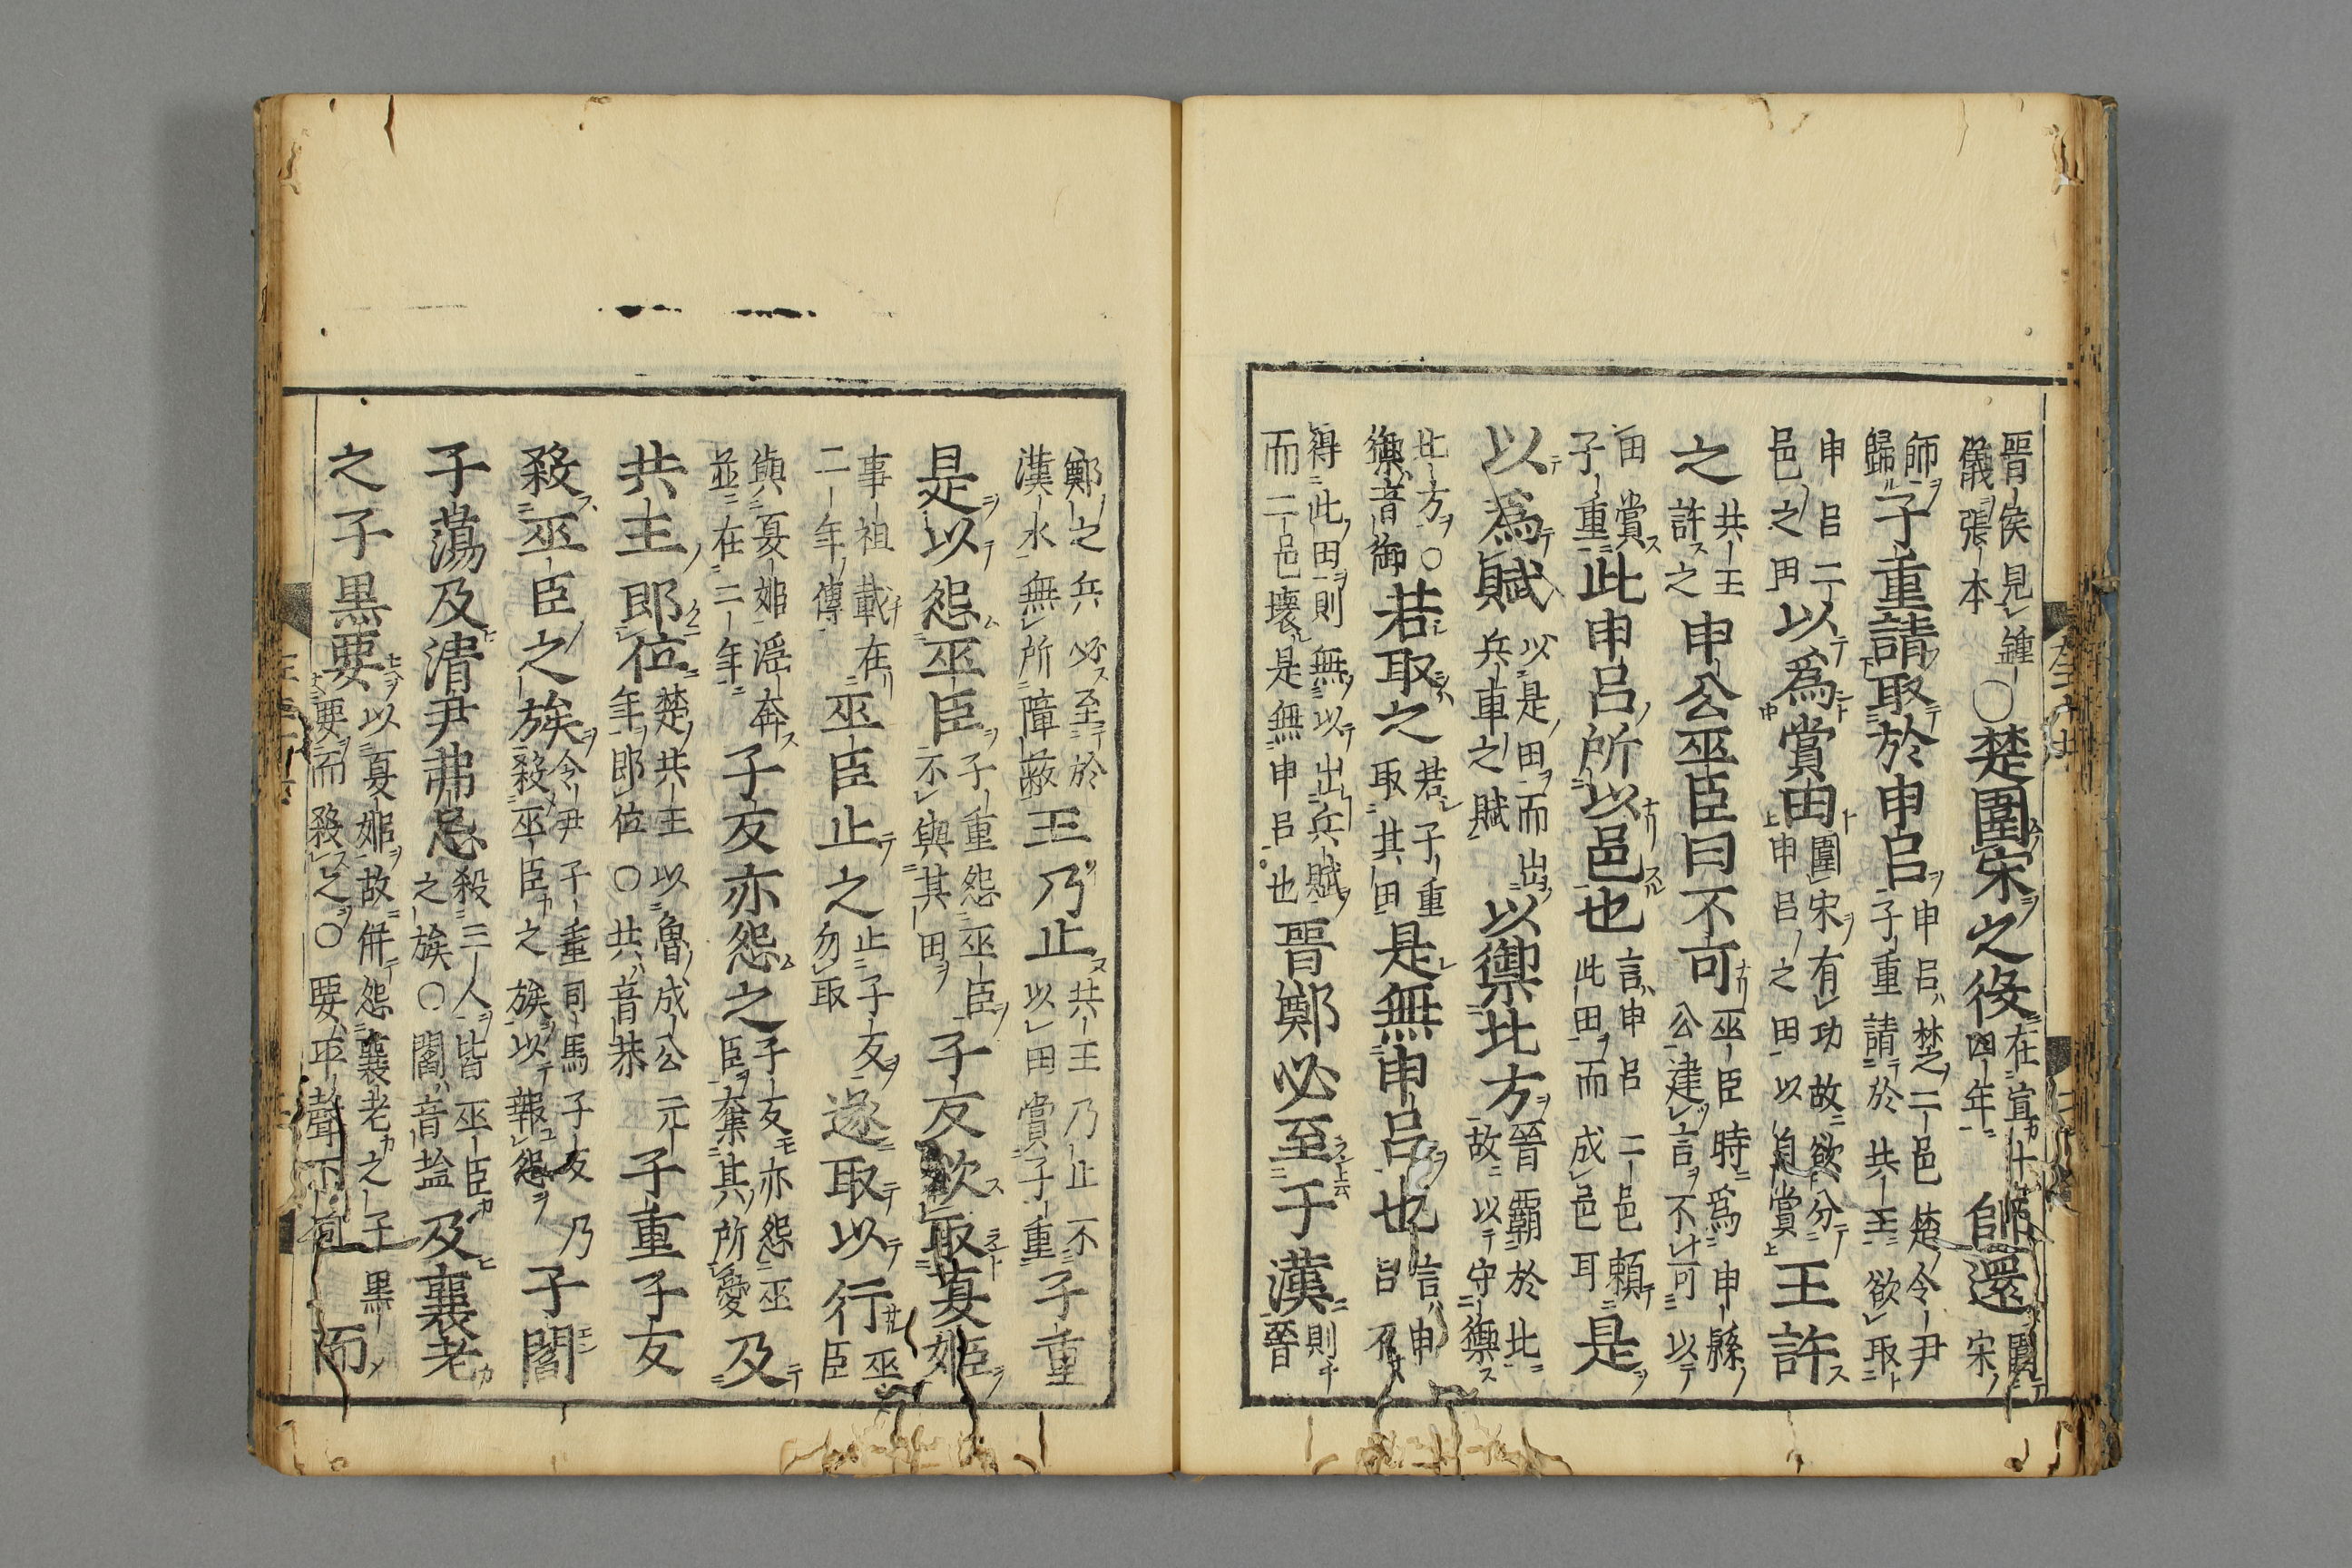 晋侯見鍾
儀張本
○楚圍宋之役
在宣十
四年
師還
圍
宋
師
歸
子重請取於申呂
申呂楚二邑楚令尹
子重請於共王欲取
申呂二
邑之田
以爲賞田
圍宋有功故欲分
申呂之田以自賞
王許
之
共王
許之
申公巫臣曰不可
巫臣時爲申縣
公建言不可以
田賞
子重
此申呂所以邑也
言申呂二邑賴
此田而成邑耳
是
以爲賦
以是田而出
兵車之賦
以御北方
晉霸於北
故以守禦
北方○
禦音御
若取之
若子重
取其田
是無申呂也
言申
呂不
得此田則無以出兵賦
而二邑壞是無申呂也
晋鄭必至于漢
則
晉
鄭之兵必至於
漢水無所障蔽
王乃止
共王乃止不
以田賞子重
子重
是以怨巫臣
子重怨巫臣
不與其田
子反欲取夏姬
事祖載在
二年傳
巫臣止之
止子反
勿取
遂取以行
巫
臣
與夏姬淫奔
並在二年
子反亦怨之
子反亦怨巫
臣奪其所愛
及
共王即位
楚共王以魯成公元
年即位○共音恭
子重子反
殺巫臣之族
令尹子重司馬子反乃
殺巫臣之族以報怨
子閻
子蕩及清尹弗忌
殺三人皆巫臣
之族○閻音塩
及襄老
之子黒要
以夏姬故併怨襄老之子黒
要而殺之○要平聲下同
而